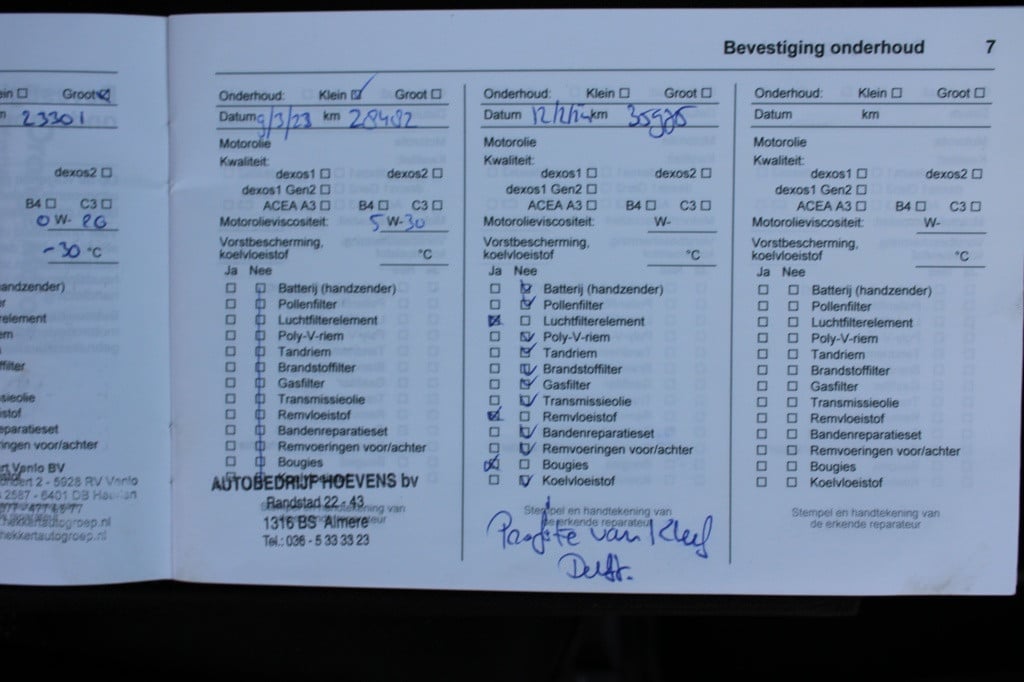 Bevestiging onderhoud 7
Klein Groot
23301
dexos2
B4 C3
0 W- 20
-30 °C
andzender)
element
filter
sieolie
stof
eparatieset
ringen voor/achter
rt Venlo BV
2 - 5928 RV Venlo
hekkertautogroep.nl
hekkertautogroep.nl
Onderhoud: Klein Groot
Datum 9/3/23 km 28482
Motorolie
Kwaliteit:
dexos1 dexos2
dexos1 Gen2
ACEA A3 B4 C3
Motorolieviscositeit: 5 W-30
Vorstbescherming,
koelvloeistof °C
Ja Nee
Batterij (handzender)
Pollenfilter
Luchtfilterelement
Poly-V-riem
Tandriem
Brandstoffilter
Gasfilter
Transmissieolie
Remvloeistof
Bandenreparatieset
Remvoeringen voor/achter
Bougies
AUTOBEDRIJF HOEVENS bv
Randstad 22 - 43
1316 BS Almere
Tel.: 036 - 5 33 33 23
Onderhoud: Klein Groot
Datum km
Motorolie
Kwaliteit:
dexos1 dexos2
dexos1 Gen2
ACEA A3 B4 C3
Motorolieviscositeit: W-
Vorstbescherming,
koelvloeistof °C
Ja Nee
Batterij (handzender)
Pollenfilter
Luchtfilterelement
Poly-V-riem
Tandriem
Brandstoffilter
Gasfilter
Transmissieolie
Remvloeistof
Bandenreparatieset
Remvoeringen voor/achter
Bougies
Koelvloeistof
Stempel en handtekening van
de erkende reparateur
van Kleef
Delft.
Onderhoud: Klein Groot
Datum km
Motorolie
Kwaliteit:
dexos1 dexos2
dexos1 Gen2
ACEA A3 B4 C3
Motorolieviscositeit: W-
Vorstbescherming,
koelvloeistof °C
Ja Nee
Batterij (handzender)
Pollenfilter
Luchtfilterelement
Poly-V-riem
Tandriem
Brandstoffilter
Gasfilter
Transmissieolie
Remvloeistof
Bandenreparatieset
Remvoeringen voor/achter
Bougies
Koelvloeistof
Stempel en handtekening van
de erkende reparateur